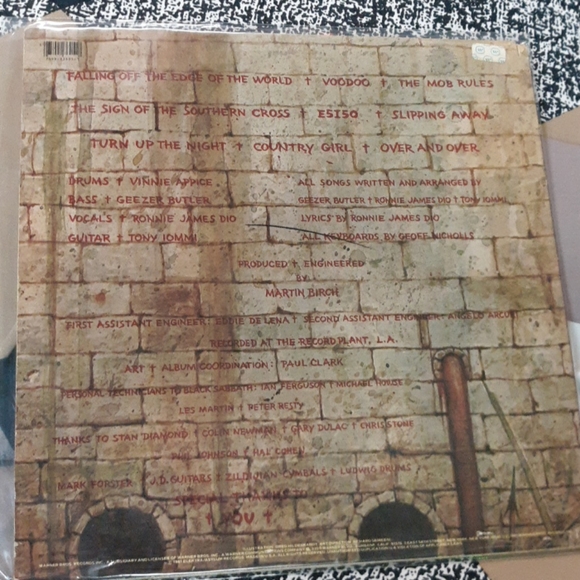 FALLING OFF THE EDGE OF THE WORLD † VOODOO † THE MOB RULES
THE SIGN OF THE SOUTHERN CROSS † E5150 † SLIPPING AWAY
TURN UP THE NIGHT † COUNTRY GIRL † OVER AND OVER
DRUMS † VINNIE APPICE
BASS † GEEZER BUTLER
VOCALS † RONNIE JAMES DIO
GUITAR † TONY IOMMI
ALL SONGS WRITTEN AND ARRANGED BY
GEEZER BUTLER † RONNIE JAMES DIO † TONY IOMMI
LYRICS BY RONNIE JAMES DIO
ALL KEYBOARDS BY GEOFF NICHOLLS
PRODUCED † ENGINEERED
BY
MARTIN BIRCH
FIRST ASSISTANT ENGINEER: EDDIE DELENA † SECOND ASSISTANT ENGINEER: ANGELO ARCURI
RECORDED AT THE RECORD PLANT, L.A.
ART † ALBUM COORDINATION: PAUL CLARK
PERSONAL TECHNICIANS TO BLACK SABBATH: IAN FERGUSON † MICHAEL HODGE
LES MARTIN † PETER RESTY
THANKS TO STAN DIAMOND † COLIN NEWMAN † GARY DULAC † CHRIS STONE
JOHNSON † HAL COHEN
MARK FORSTER † J.D. GUITARS † ZILDJIAN CYMBALS † LUDWIG DRUMS
SPECIAL THANKS TO
† YOU †